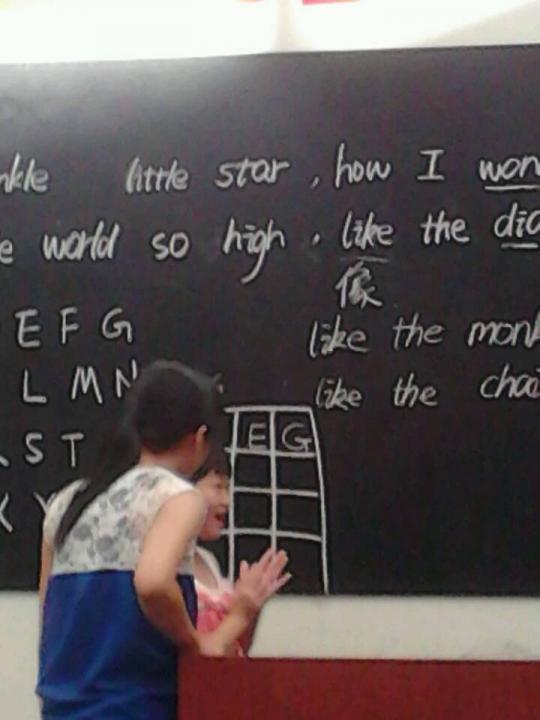 nkle little star, how I won
e world so high, like the dia
像
E F G like the monk
L M N like the chai
E G
S T
X Y